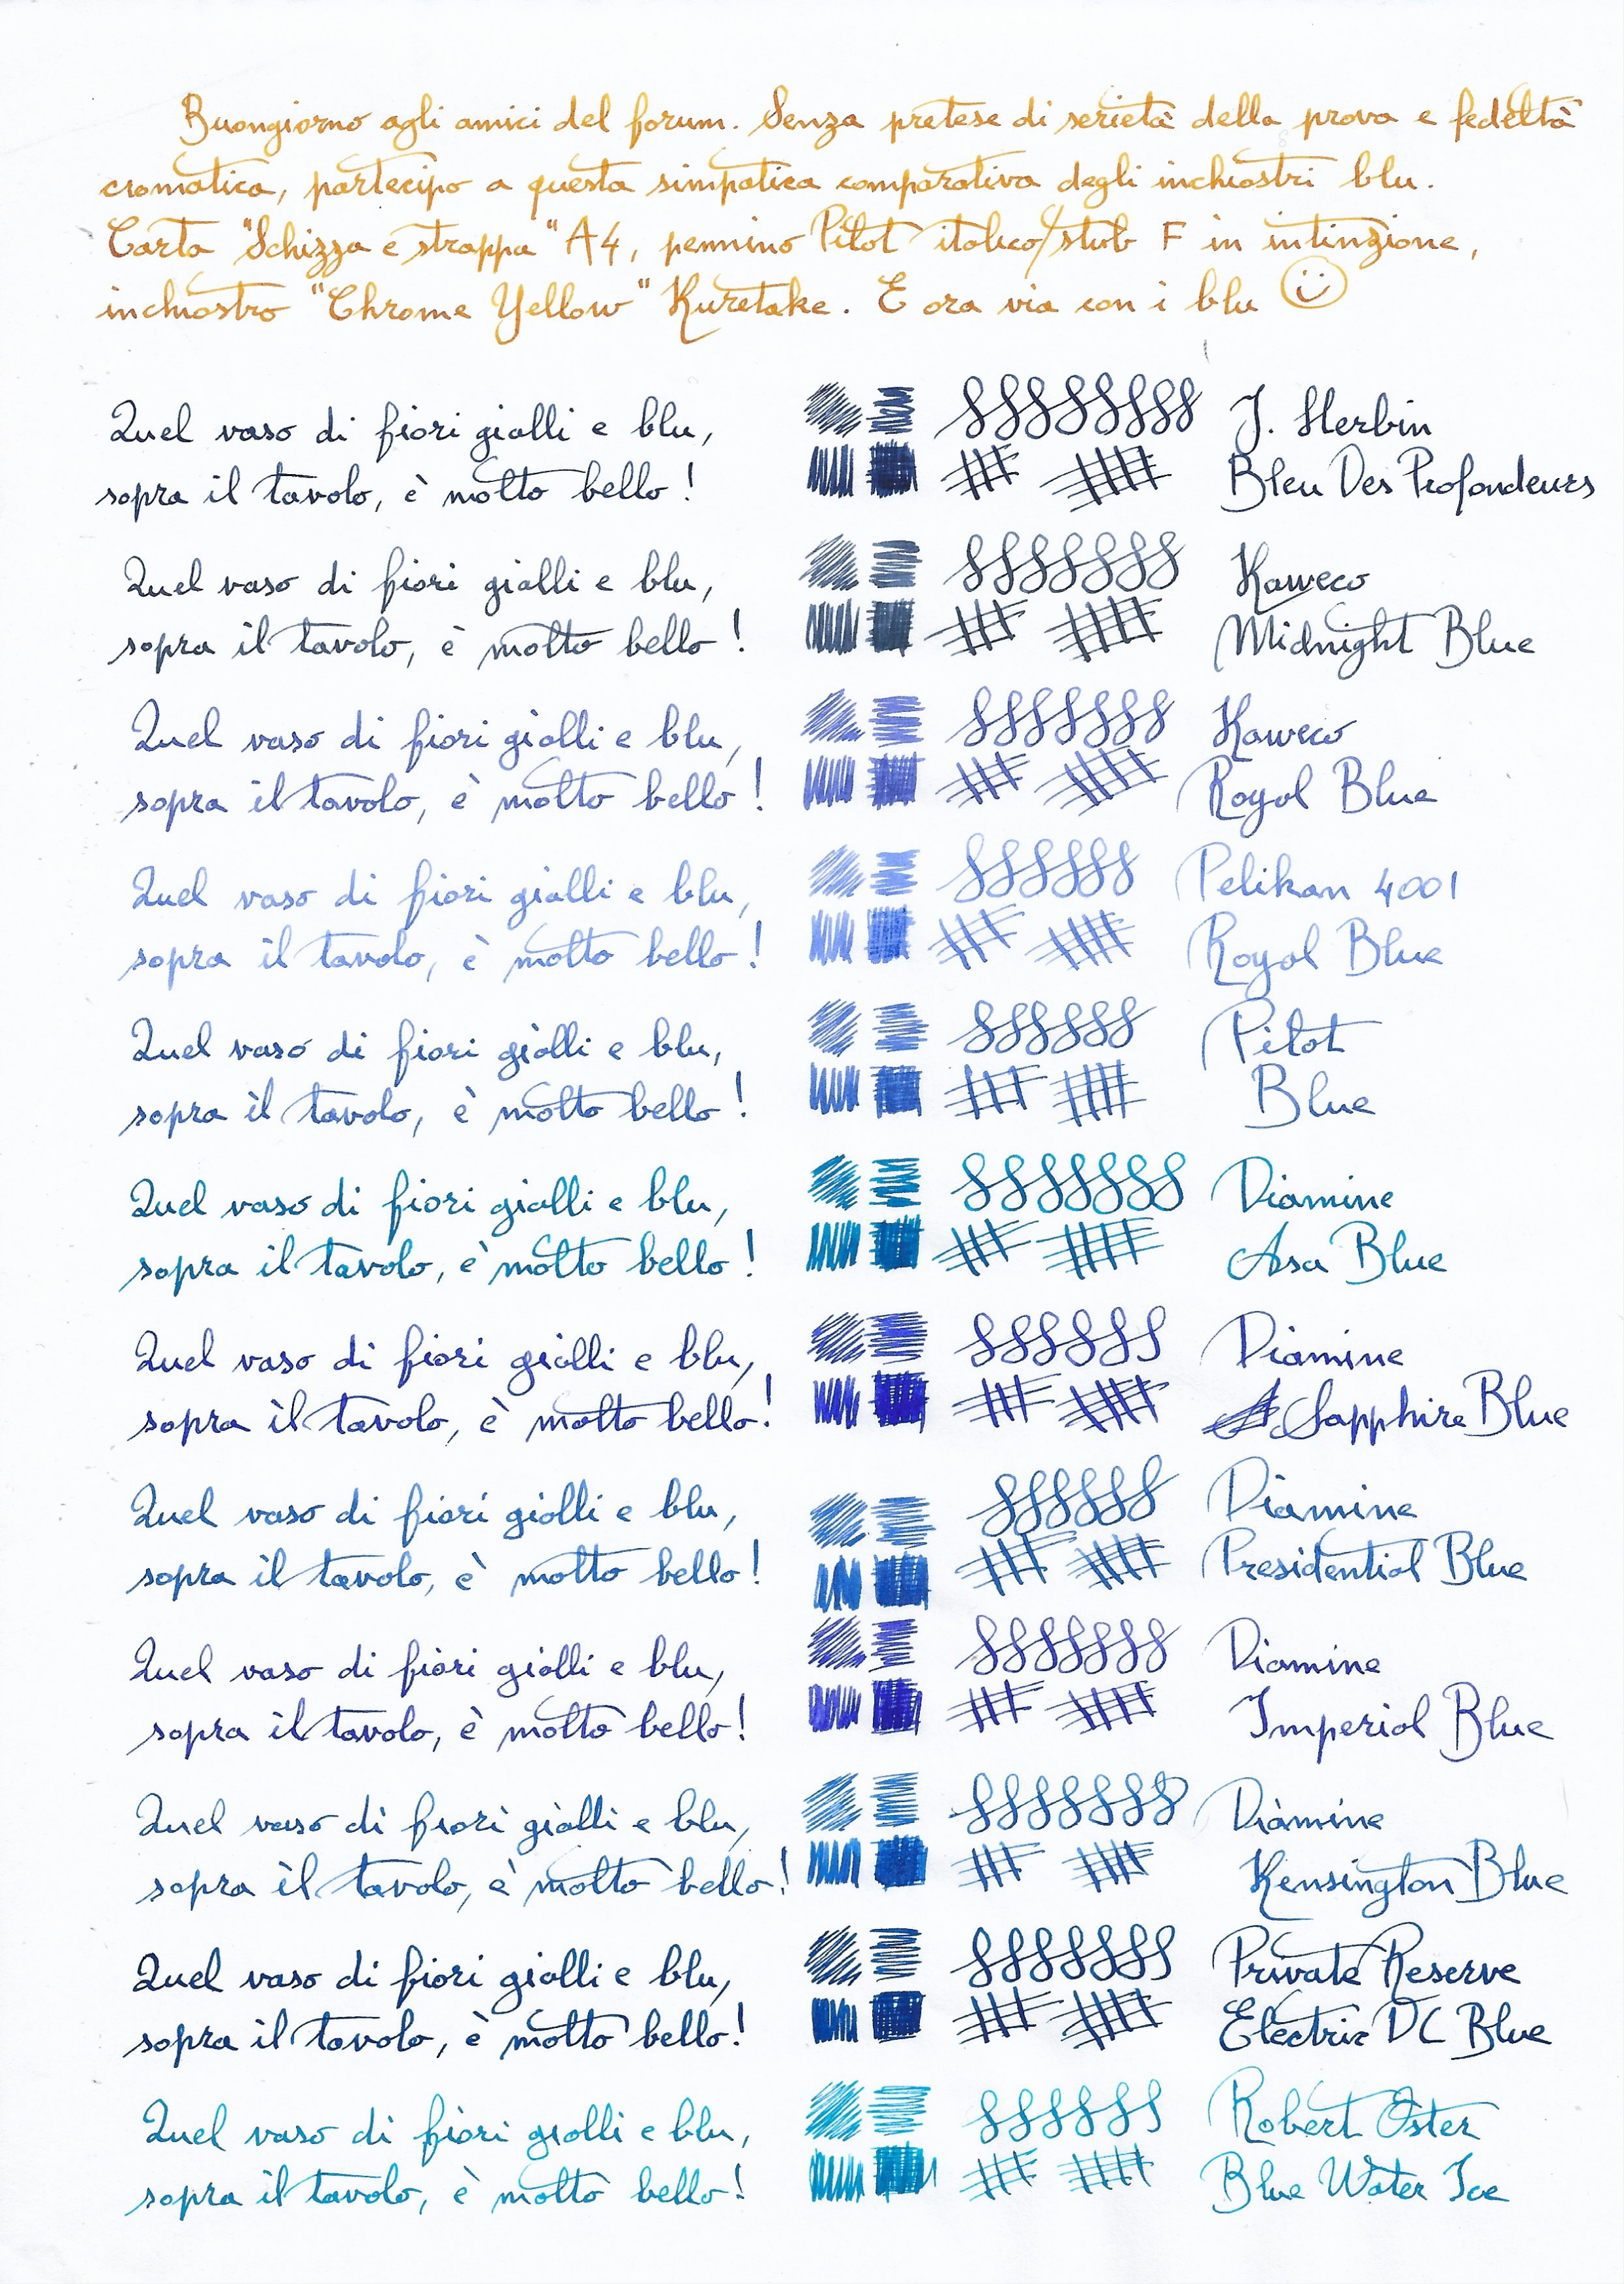 Buongiorno agli amici del forum. Senza pretese di serietà della prova e fedeltà
cromatica, partecipo a questa simpatica comparativa degli inchiostri blu.
Carta "Schizza e strappa" A4, pennino Pilot italico/stub F in intinzione,
inchiostro "Chrome Yellow" Kuretake. E ora via con i blu
Quel vaso di fiori gialli e blu,
sopra il tavolo, è molto bello!
J. Herbin
Bleu Des Profondeurs
Quel vaso di fiori gialli e blu,
sopra il tavolo, è molto bello!
Kaweco
Midnight Blue
Quel vaso di fiori gialli e blu,
sopra il tavolo, è molto bello!
Kaweco
Royal Blue
Quel vaso di fiori gialli e blu,
sopra il tavolo, è molto bello!
Pelikan 4001
Royal Blue
Quel vaso di fiori gialli e blu,
sopra il tavolo, è molto bello!
Pilot
Blue
Quel vaso di fiori gialli e blu,
sopra il tavolo, è molto bello!
Diamine
Asa Blue
Quel vaso di fiori gialli e blu,
sopra il tavolo, è molto bello!
Diamine
Sapphire Blue
Quel vaso di fiori gialli e blu,
sopra il tavolo, è molto bello!
Diamine
Presidential Blue
Quel vaso di fiori gialli e blu,
sopra il tavolo, è molto bello!
Diamine
Imperial Blue
Quel vaso di fiori gialli e blu,
sopra il tavolo, è molto bello!
Diamine
Kensington Blue
Quel vaso di fiori gialli e blu,
sopra il tavolo, è molto bello!
Private Reserve
Electric DC Blue
Quel vaso di fiori gialli e blu,
sopra il tavolo, è molto bello!
Robert Oster
Blue Water Ice